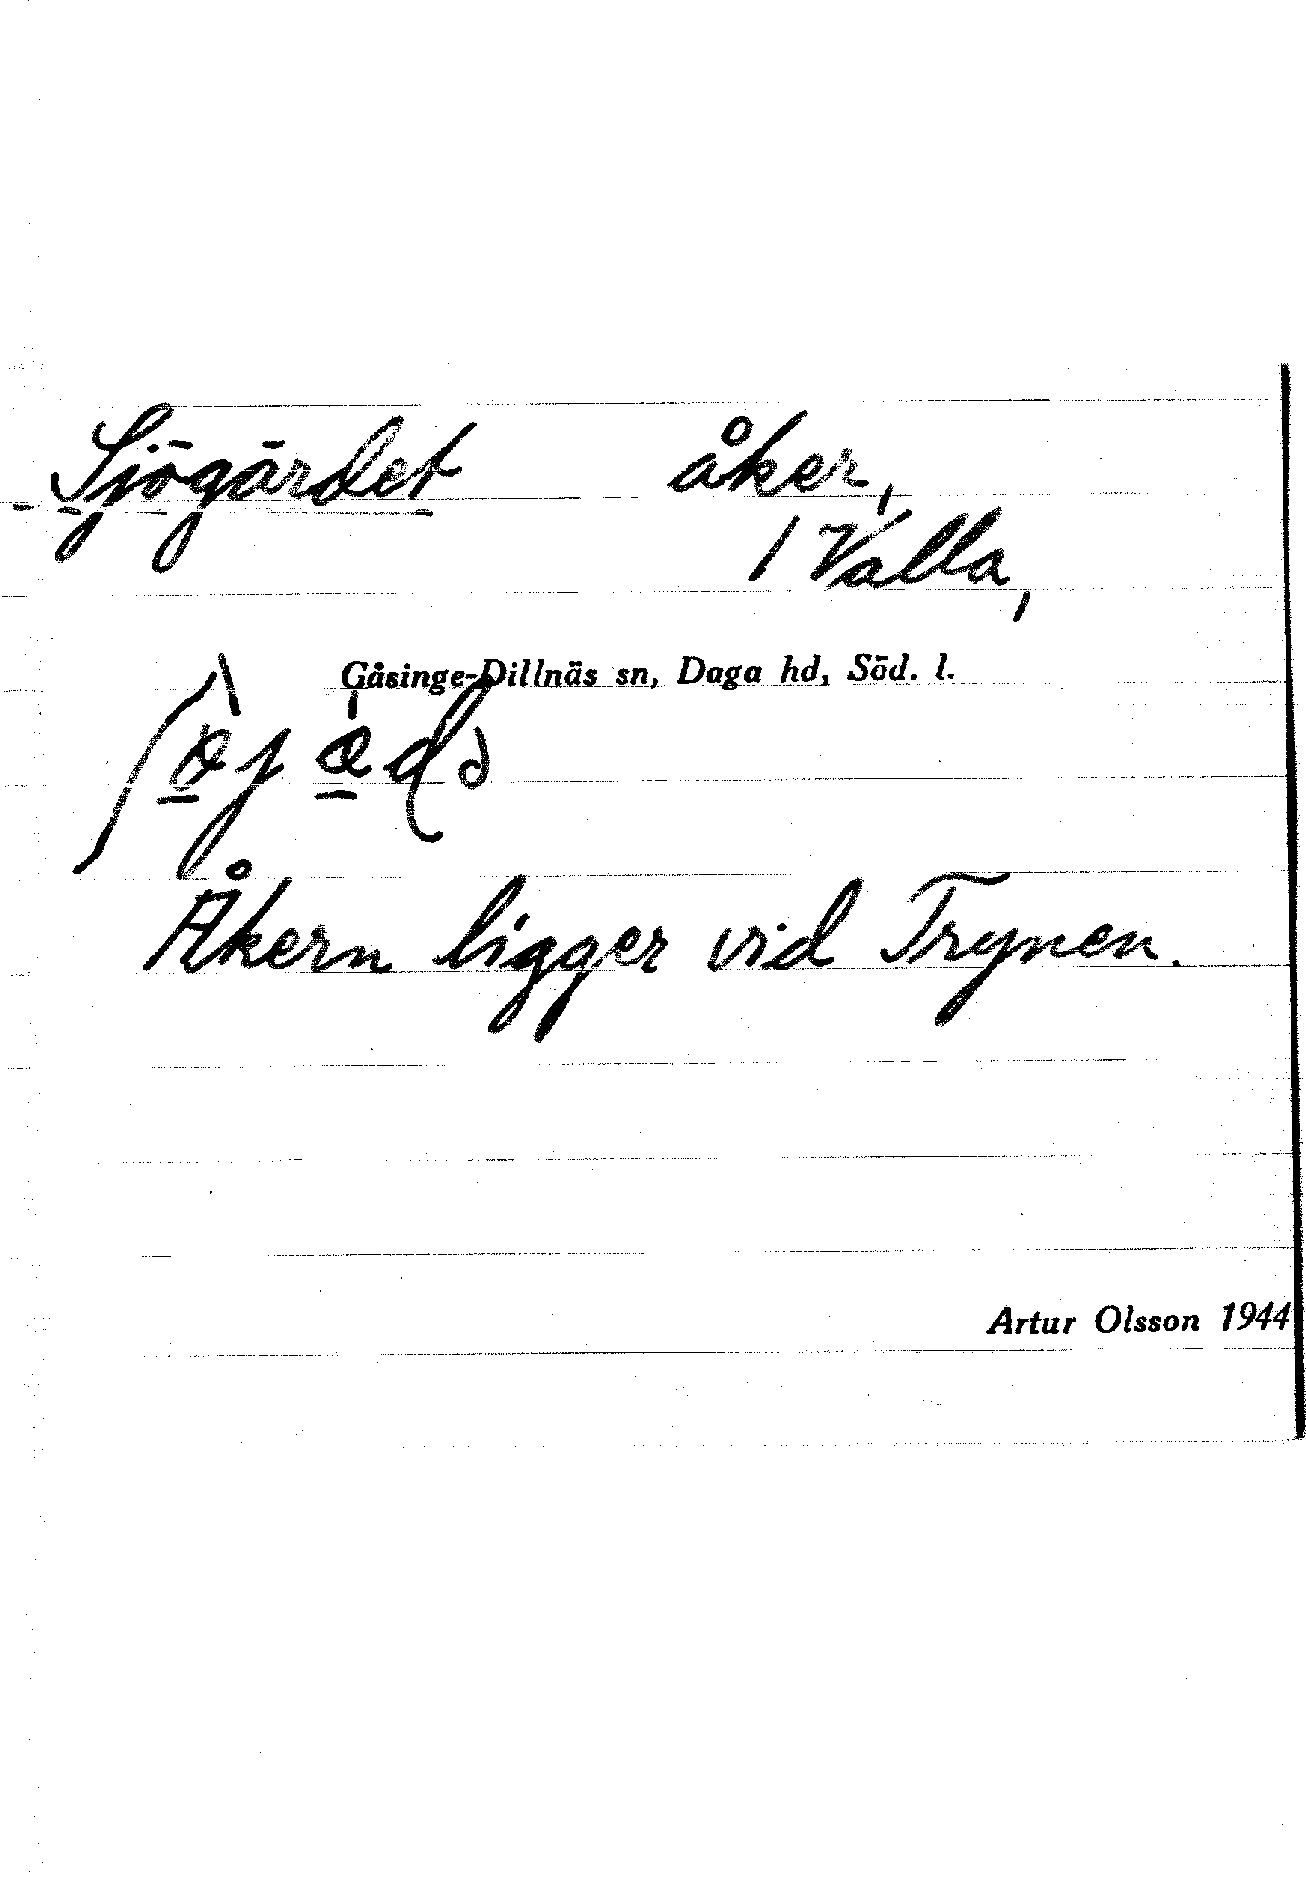 Sjögärdet åker,
1 Valla,
Gåsinge-Dillnäs sn, Daga hd, Söd. l.
Åkern ligger vid Trynen.
Artur Olsson 1944